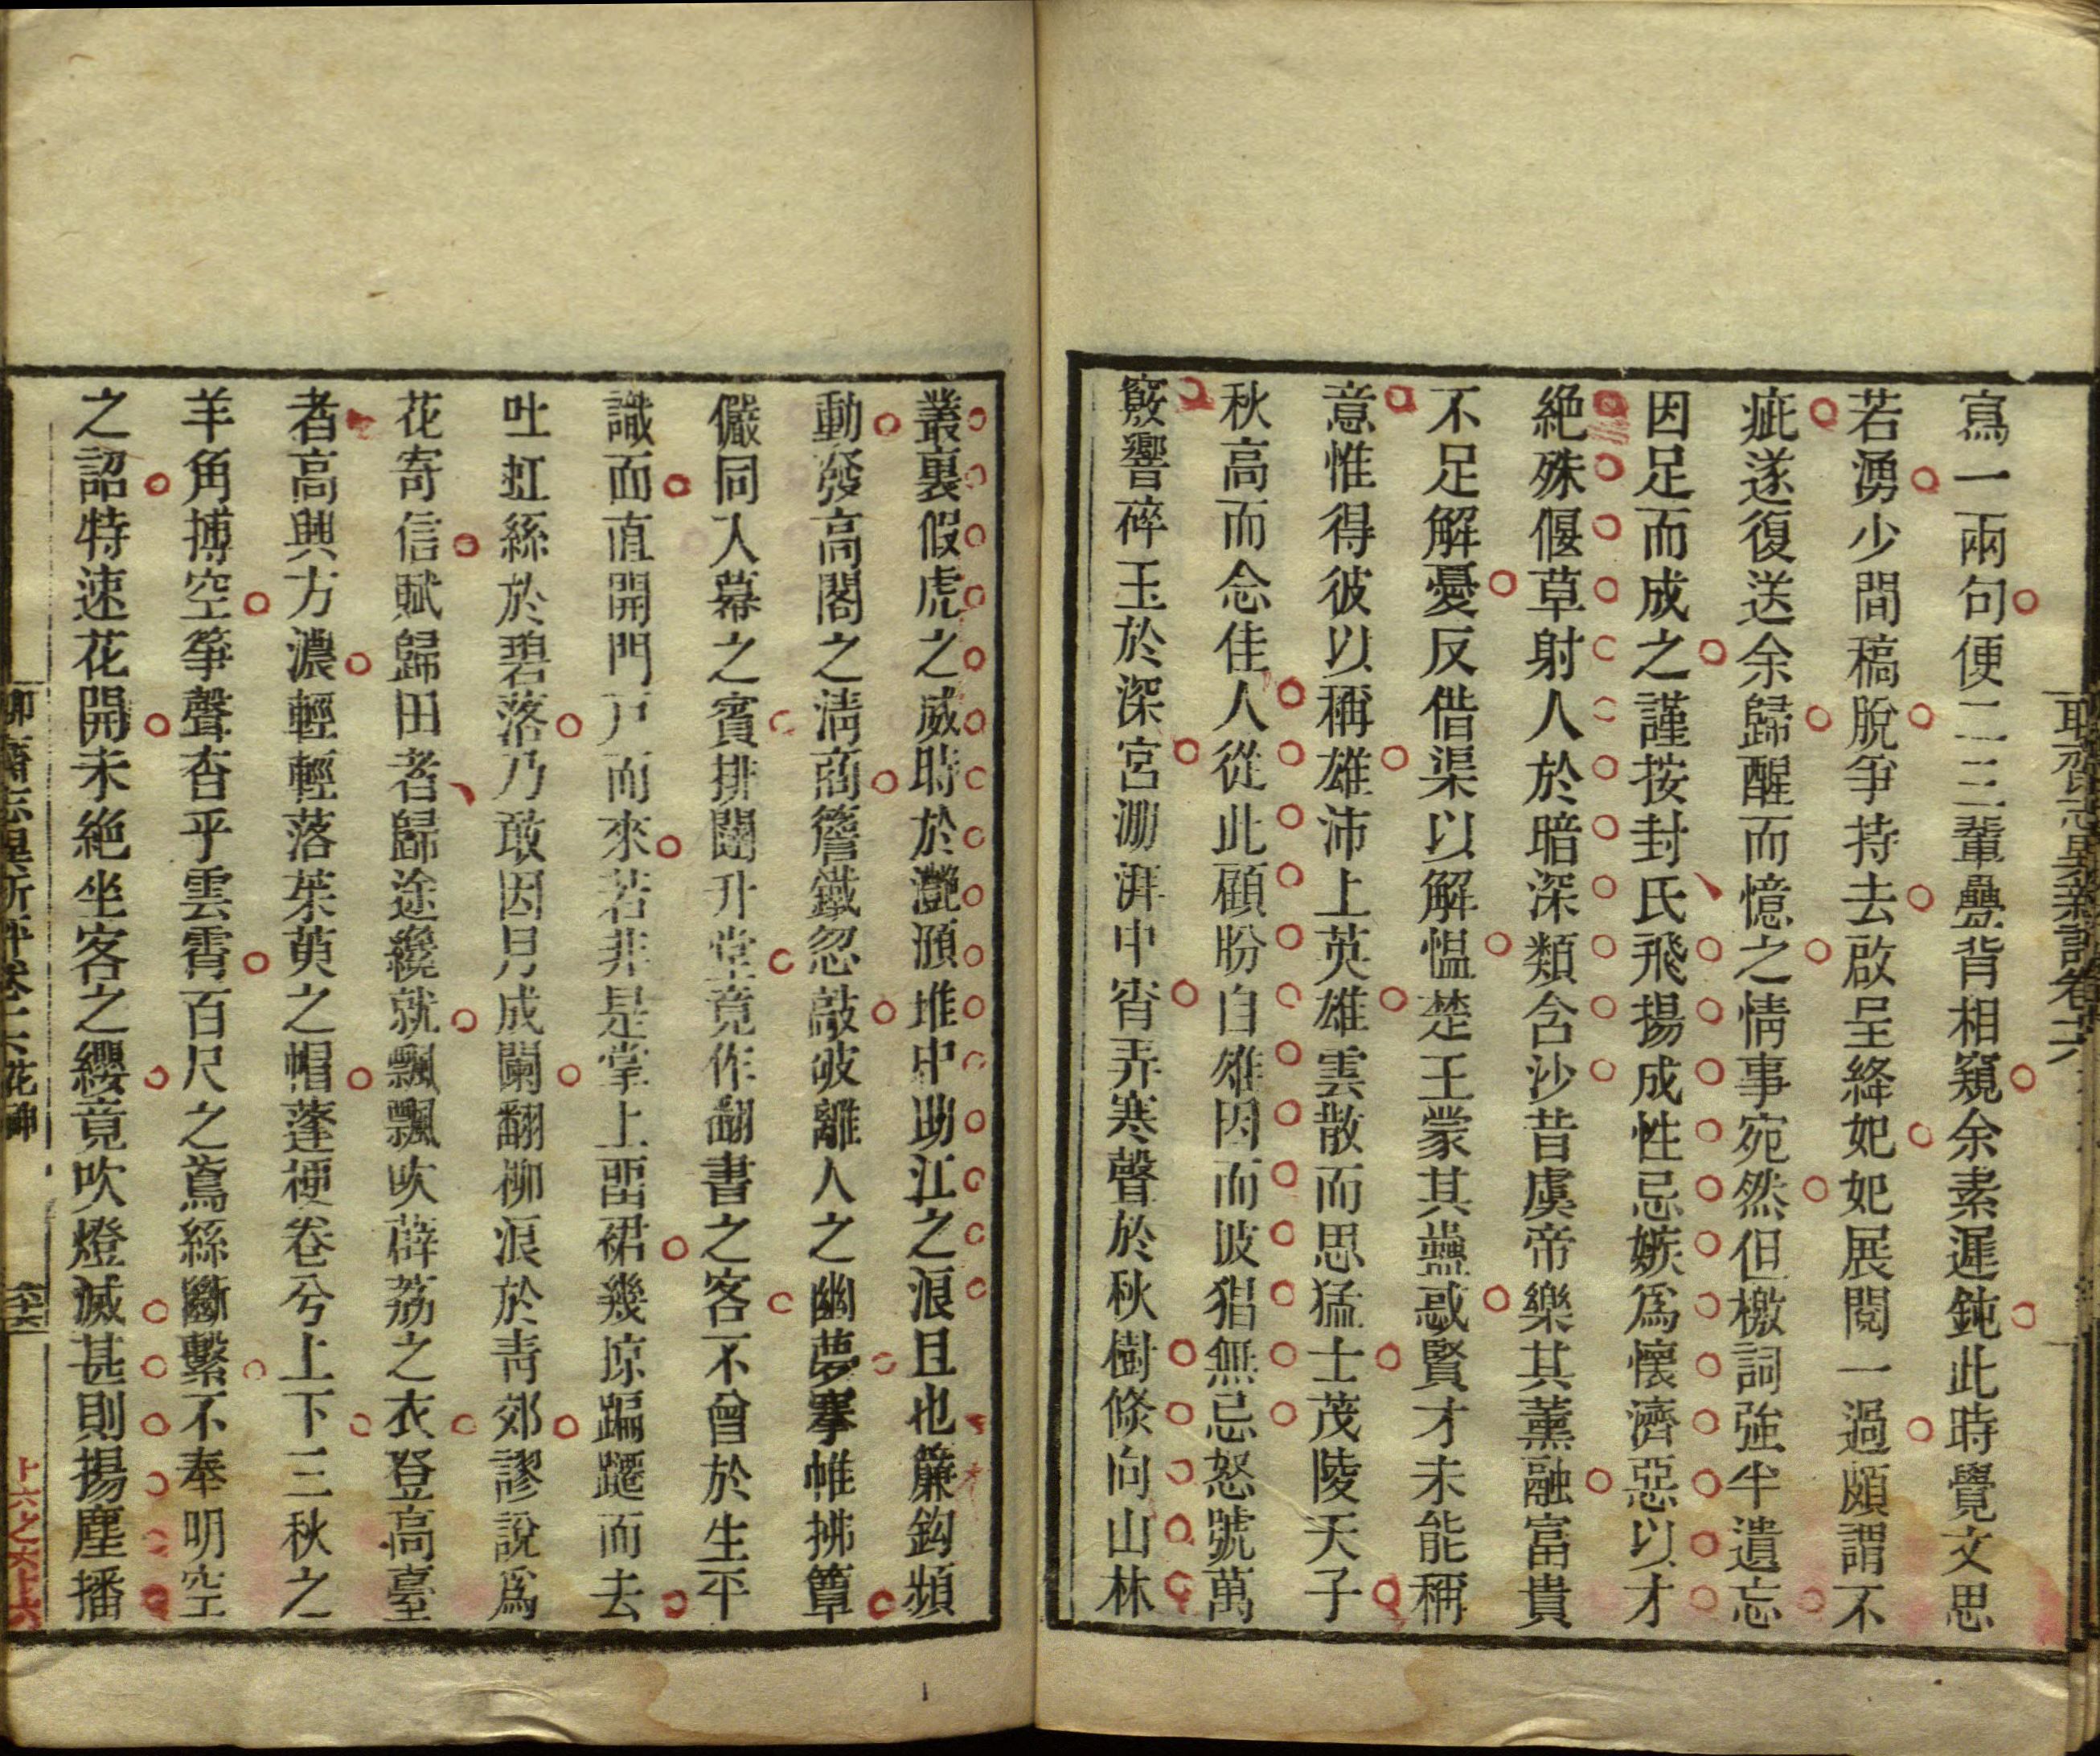 聊齋志異新評卷十六
寫一兩句便二三輩疊背相窺余素遲鈍此時覺文思
若湧少間稿脫爭持去啟呈絳妃妃展閱一過頗謂不
疵遂復送余歸醒而憶之情事宛然但檄詞強半遺忘
因足而成之謹按封氏飛揚成性忌嫉爲懷濟惡以才
絶殊偃草射人於暗深類含沙昔虞帝樂其薰融富貴
不足解憂反借渠以解慍楚王蒙其蠱惑賢才未能稱
意惟得彼以稱雄沛上英雄雲散而思猛士茂陵天子
秋高而念佳人從此顧盼自雄因而披猖無忌怒號萬
竅響碎玉於深宮澎湃中宵弄寒聲於秋樹倏向山林
叢裏假虎之威時於灧澦堆中助江之浪且也簾鈎頻
動發高閣之淸商簷鐵忽敲破離人之幽夢搴帷拂簟
儼同入幕之賓排闥升堂竟作翻書之客不曾於生平
識面直開門戸而來若非是掌上畱裙幾掠蹁躚而去
吐虹絲於碧落乃敢因月成闌翻柳浪於青郊謬說爲
花寄信賦歸田者歸途纔就飄飄吹薜荔之衣登高臺
者高興方濃輕輕落茱萸之帽蓬梗卷兮上下三秋之
羊角摶空箏聲杳乎雲霄百尺之鳶絲斷繫不奉明空
之詔特速花開未絶坐客之纓竟吹燈滅甚則揚塵播
聊齋志異新評卷十六花神